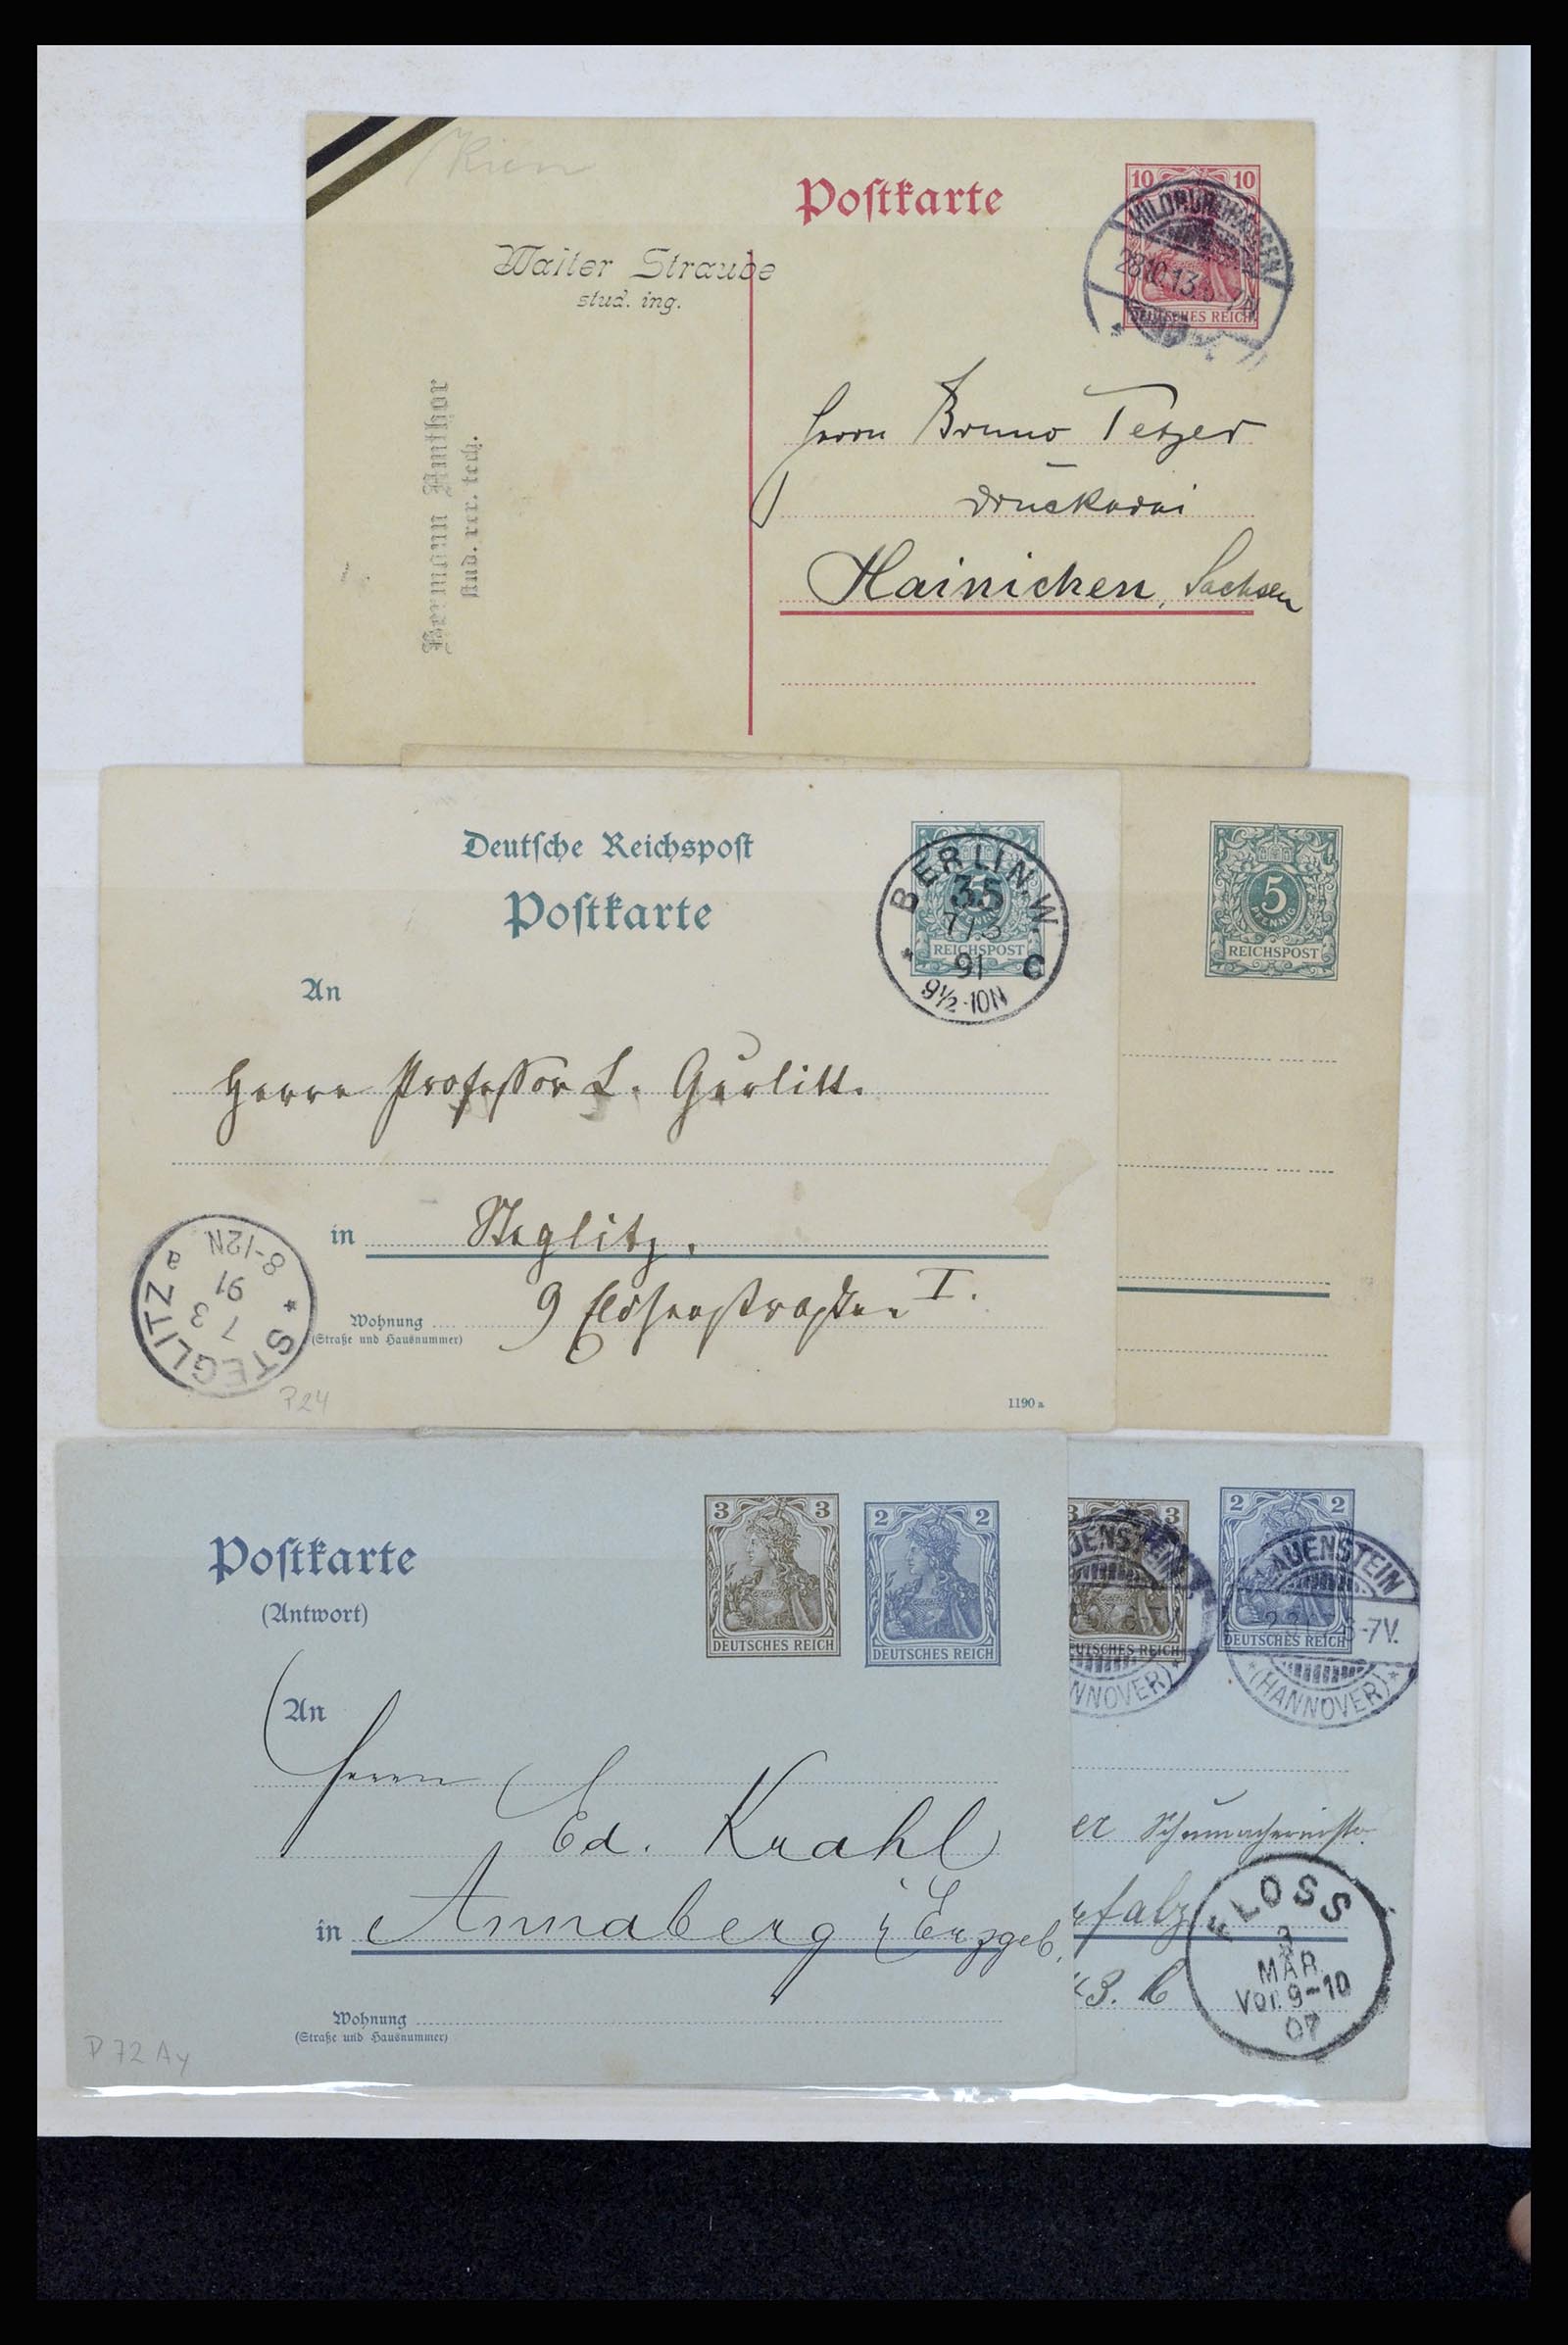 Kien
Postkarte
10 10
DEUTSCHES REICH
HILDBURGHAUSEN
28.10.13. 6-7N
Walter Straube
stud. ing.
Hermann Amthor
stud. rer. tech.
Herrn Bruno Tetzer
Druckerei
Hainichen, Sachsen
Deutsche Reichspost
Postkarte
BERLIN. W.
35
7/3
91 C
9½-10N
REICHSPOST
5
PFENNIG
REICHSPOST
An
Herrn Professor L. Gurlitt.
in Steglitz.
9 I.
Wohnung
(Straße und Hausnummer)
* STEGLITZ a
7 3
91
8-12N
P24
1190 a
Postkarte
(Antwort)
3 3
DEUTSCHES REICH
2 2
DEUTSCHES REICH
An
Herrn
Ed. Krahl
in Annaberg i/Erzgeb.
Wohnung
(Straße und Hausnummer)
P 72 Ay
3 3
EUTSCHES REICH
UENSTEIN
NNOVER)*
2 2
DEUTSCHES REICH
LAUENSTEIN
6-7V.
*(HANNOVER)*
er Schumachermstr.
rfalz
FLOSS
3
MAR
Vor. 9-10
07